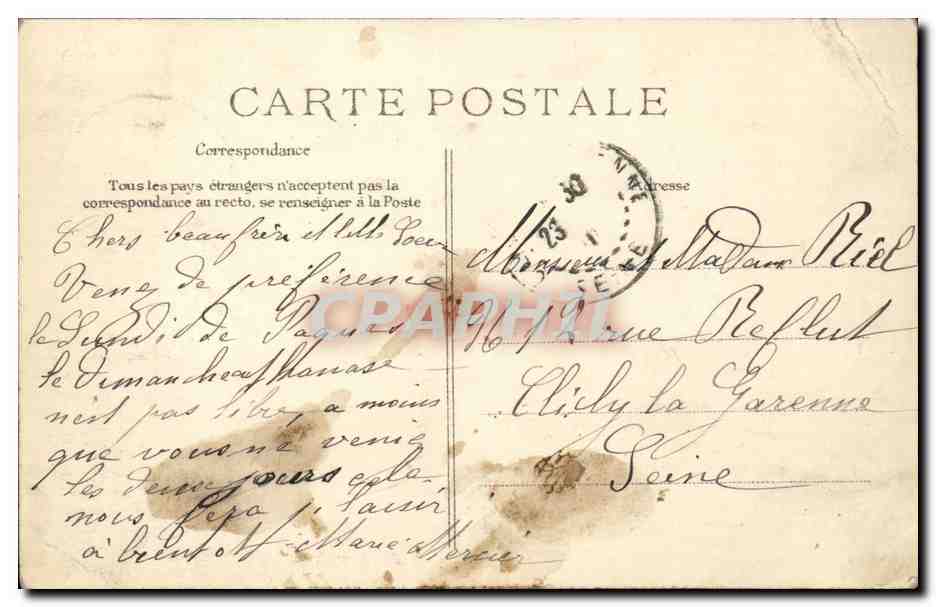 CARTE POSTALE
Correspondance
Tous les pays étrangers n'acceptent pas la
correspondance au recto, se renseigner à la Poste
Adresse
Chers beau frère et belle Soeur
Venez de préférence
le Lundi de Paques
le dimanche
n'est pas libre, a moins
que vous ne venie
les deux jours cela
nous fera plaisir
à bientot Marie Mercier
Monsieur et Madame Riel
N 12 rue Reflut
Clichy la Garenne
Seine
23
30
SEINE
CPAPHIL